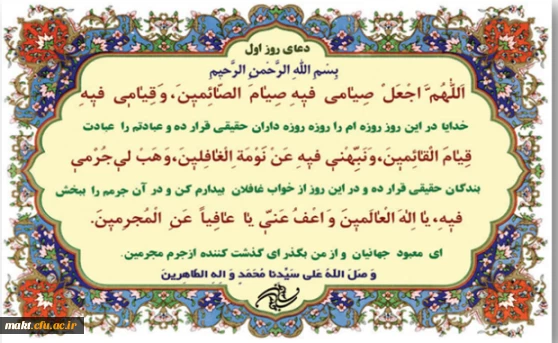 دعای روز اول
بِسْمِ اللهِ الرَّحْمنِ الرَّحیمِ
اَللّهُمَّ اجْعَلْ صِیامی فیهِ صِیامَ الصّائِمینَ، وَ قِیامی فیهِ
خدایا در این روز روزه ام را روزه روزه داران حقیقی قرار ده و عبادتم را عبادت
قِیامَ الْقائِمینَ، وَ نَبِّهْنی فیهِ عَنْ نَوْمَةِ الْغافِلینَ، وَ هَبْ لی جُرْمی
بندگان حقیقی قرار ده و در این روز از خواب غافلان بیدارم کن و در آن جرمم را ببخش
فیهِ، یا اِلهَ الْعالَمینَ وَ اعْفُ عَنّی یا عافِیاً عَنِ الْمُجرِمینَ.
ای معبود جهانیان و از من بگذر ای گذشت کننده ازجرم مجرمین.
وَ صَلَ اللهُ عَلی سَیِّدنا مُحَمَدٍ وَ الِهِ الطّاهِرینَ
makt.cfu.ac.ir